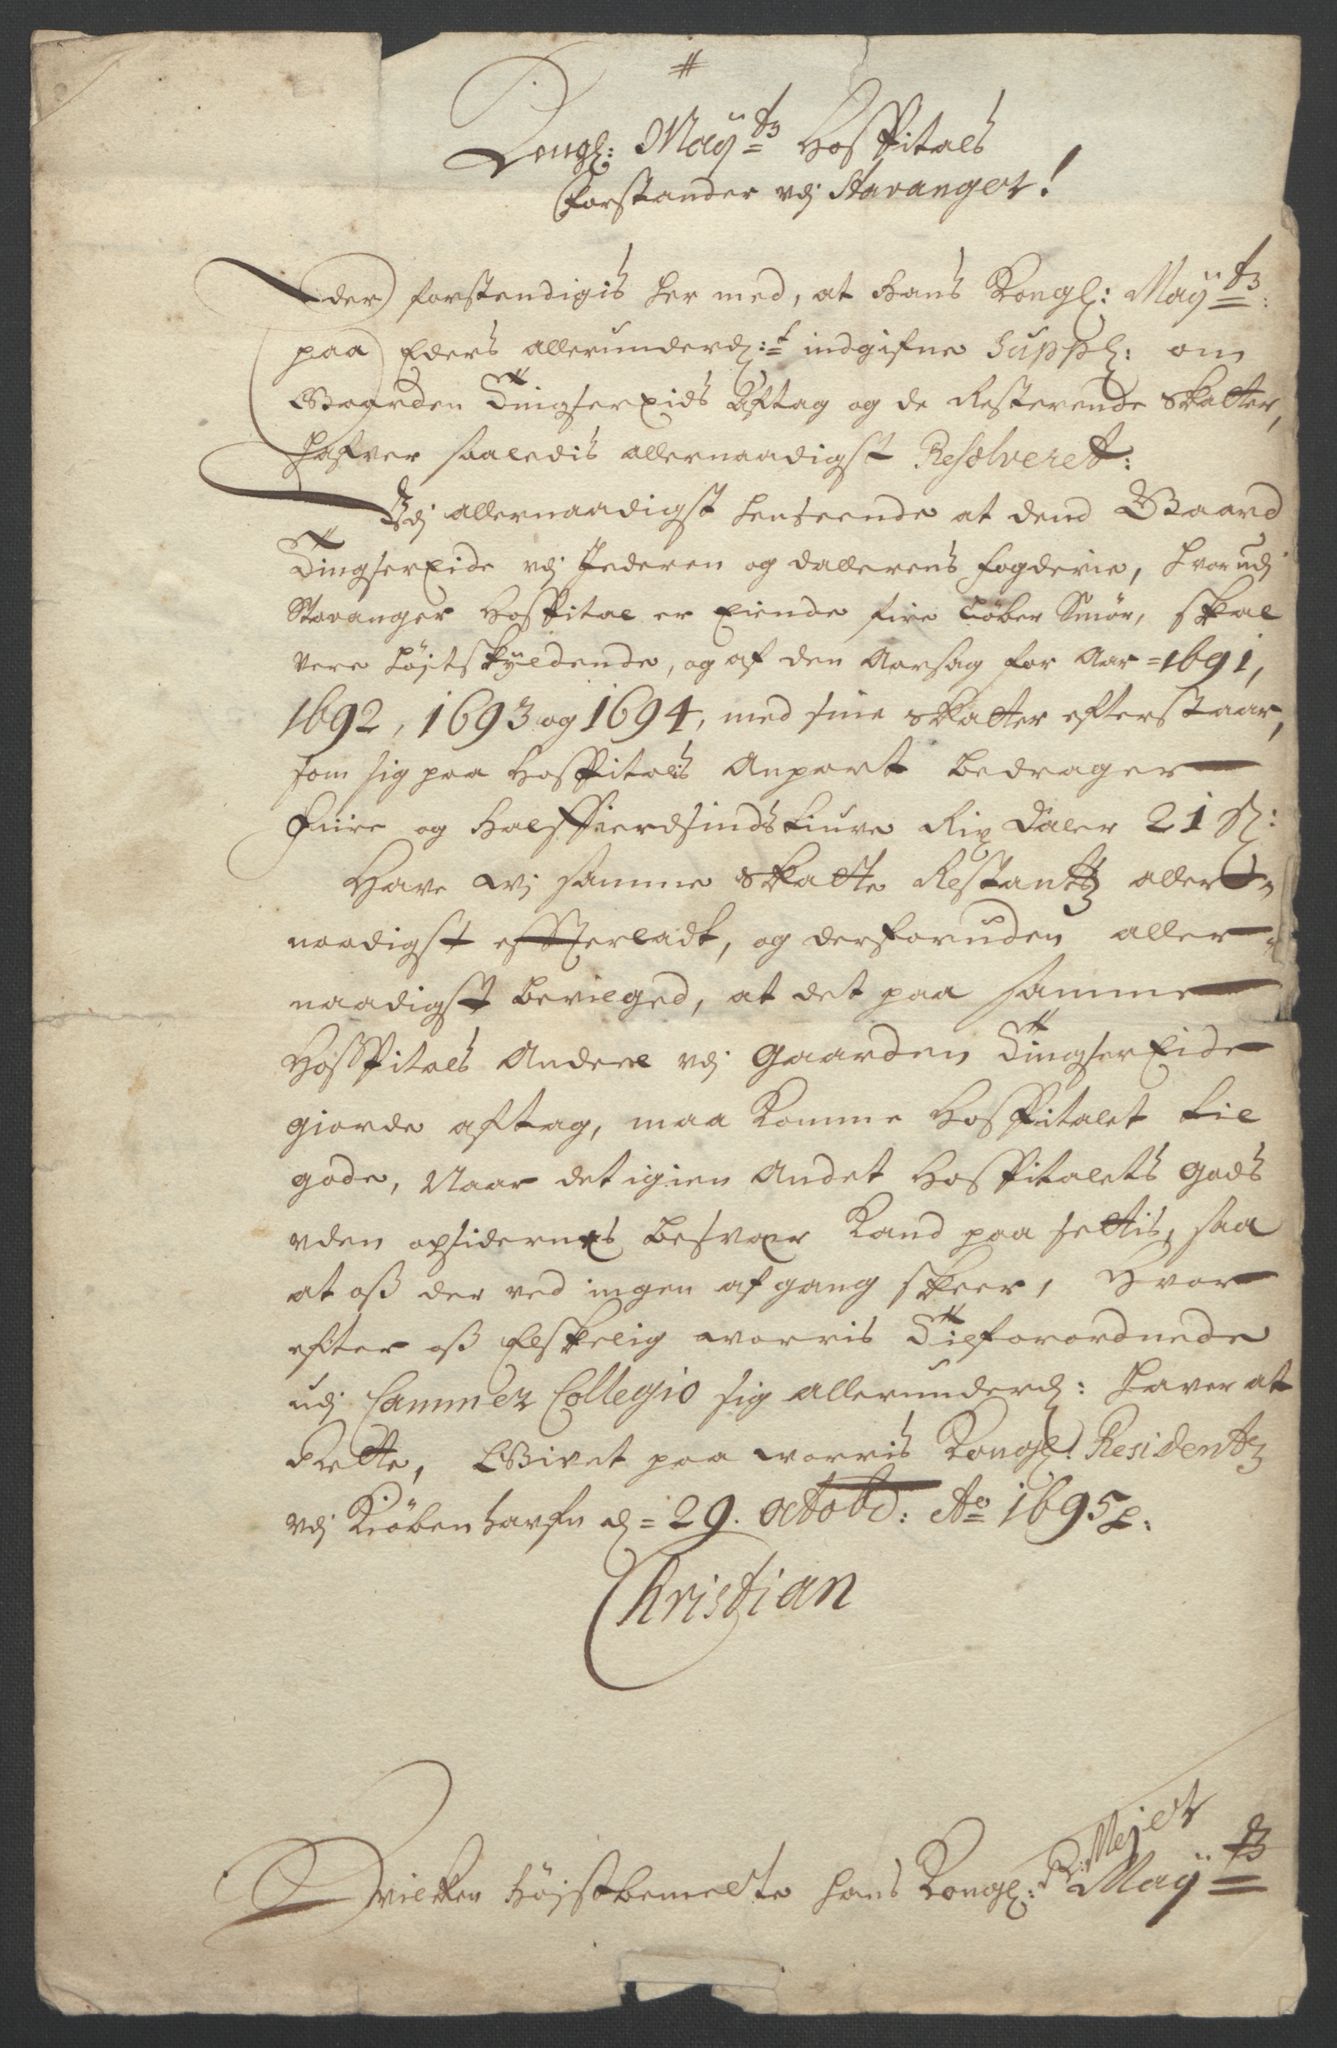 #
Kongl: Maÿtz Hospitals
forstander vdj Stavanger!
Eder forstendigis her med, at Hans Kongl: Maÿtz:
paa Eders allerunderd:t indgifne Suppl: om
Gaarden TingserEids Aftag og de Resterende Skatter,
hafver saaledis allernaadigst Resolveret:
Vdj allernaadigst henseende at dend Gaard
TingserEide vdj Jederen og Dallerens fogderie, hvorudj
Stavanger Hospital er Eiende fire Løber Smør, skal
vere Højtskÿldende, og af den Aarsag for Aar = 1691,
1692, 1693 og 1694, med sine skatter efterstaar,
som sig paa Hospitalis Anpart bedrager
Fiire og Halffierdsindstiuve Rix Daler 21 s:
Have wj samme Skatte Restantz aller-
naadigst effterladt, og derforuden aller-
naadigst bevilged, at det paa samme
Hospitals Andeel vdj Gaarden TingserEide
giorde aftag, maa Komme Hospitalet til
gode, Naar det igien Andet Hospitalets gods
vden opsidernes besvær Kand paa settis, saa
at oß der ved ingen afgang skeer, Hvor
efter oß Elskelig worris Tilforordnede
udj Cammer Collegio sig allerunderd: haver at
Rette, Givet paa worris Kongl: Residentz
vdj Kiøbenhavfn d = 29. octobr: Ao 1695 p:
Christian
R: Mejer
Hvilken Højstbemelte hans Kongl: Maÿtz